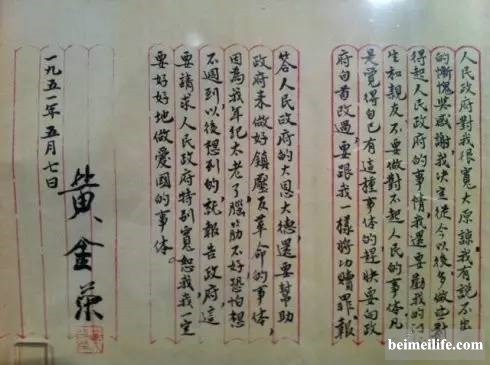 人民政府對我很寬大原諒我有說不出
的慚愧與感謝我決定從今以後多做些對
得起人民政府的事情我還要勸我的門
生和親友不要做對不起人民的事体凡
是覺得自己有這種事体的趕快要向政
府自首改過要跟我一樣將功贖罪報
答人民政府的大恩大德還要幫助
政府来做好鎮壓反革命的事体
因為我年紀太老了腦筋不好恐怕想
不週到以後想到的就報告政府這
要請求人民政府特別寬恕我我一定
要好好地做愛國的事体
一九五一年五月七日
黃金榮
beimeilife.com